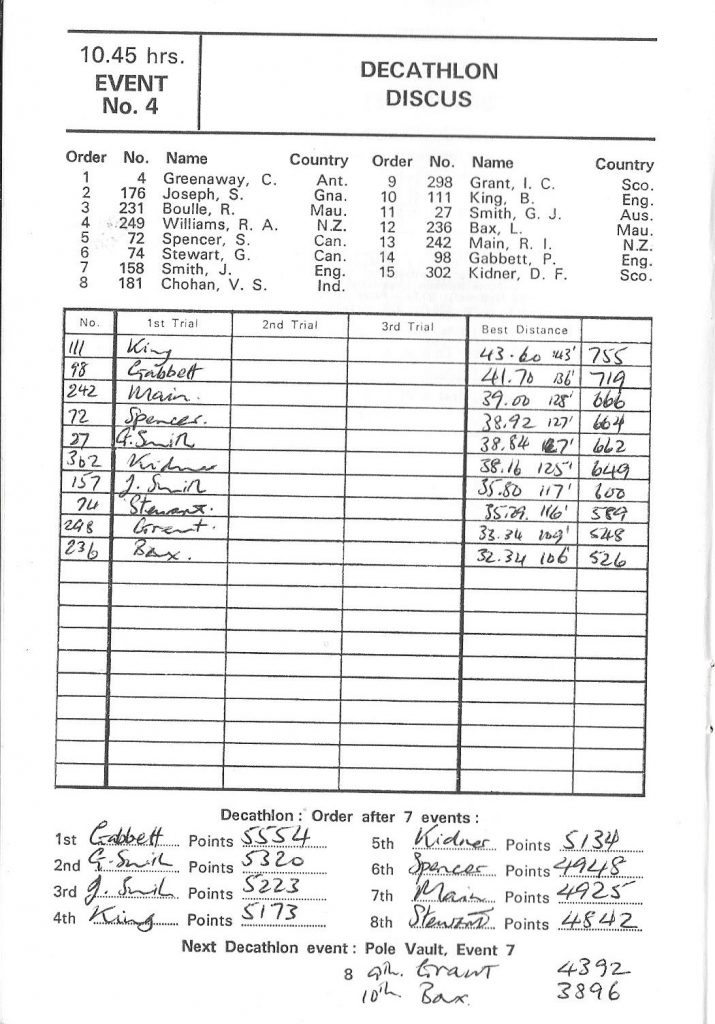 10.45 hrs.
EVENT
No. 4
DECATHLON
DISCUS
Order No. Name Country
1 4 Greenaway, C. Ant.
2 176 Joseph, S. Gna.
3 231 Boulle, R. Mau.
4 249 Williams, R. A. N.Z.
5 72 Spencer, S. Can.
6 74 Stewart, G. Can.
7 158 Smith, J. Eng.
8 181 Chohan, V. S. Ind.
Order No. Name Country
9 298 Grant, I. C. Sco.
10 111 King, B. Eng.
11 27 Smith, G. J. Aus.
12 236 Bax, L. Mau.
13 242 Main, R. I. N.Z.
14 98 Gabbett, P. Eng.
15 302 Kidner, D. F. Sco.
No. 1st Trial 2nd Trial 3rd Trial Best Distance
111 King 43.60 143' 755
98 Gabbett 41.70 136' 719
242 Main. 39.00 128' 666
72 Spencer. 38.92 127' 664
27 G. Smith 38.84 127' 662
302 Kidner 38.16 125' 649
157 J. Smith 35.80 117' 600
74 Stewart. 35.29. 116' 589
298 Grant. 33.34 109' 548
236 Bax. 32.34 106' 526
Decathlon : Order after 7 events :
1st Gabbett Points 5554
2nd G. Smith Points 5320
3rd J. Smith Points 5223
4th King Points 5173
5th Kidner Points 5134
6th Spencer Points 4948
7th Main Points 4925
8th Stewart Points 4842
Next Decathlon event : Pole Vault, Event 7
8 9th. Grant 4392
10th Bax. 3896